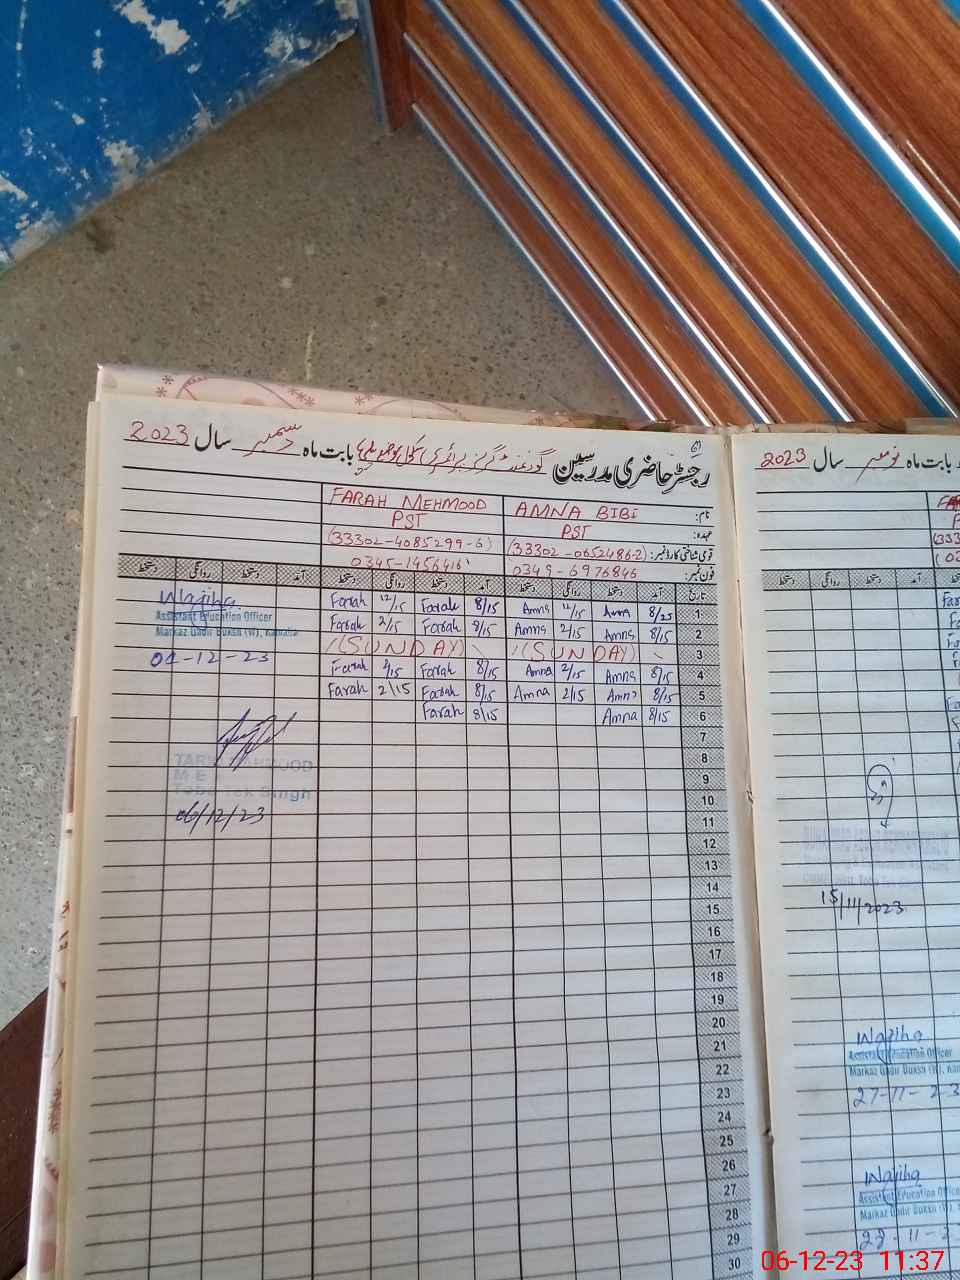 رجسٹر حاضری مدرسین گورنمنٹ گرلز پرائمری سکول بابت ماہ دسمبر سال 2023
نام: AMNA BIBI FARAH MEHMOOD
عہدہ: PST PST
قومی شناختی کارڈ نمبر: (33302-0652486-2) (33302-4085299-6)
فون نمبر: 0349-6976846 0345-1456416
تاریخ آمد دستخط روانگی دستخط آمد دستخط روانگی دستخط آمد دستخط روانگی دستخط
1 8/25 Amna 12/15 Amna 8/15 Farah 12/15 Farah
2 8/15 Amna 2/15 Amna 8/15 Farah 2/15 Farah
3 (SUNDAY) (SUNDAY)
4 8/15 Amna 2/15 Amna 8/15 Farah 2/15 Farah
5 8/15 Amna 2/15 Amna 8/15 Farah 2/15 Farah
6 8/15 Amna 8/15 Farah
7
8
9
10
11
12
13
14
15
16
17
18
19
20
21
22
23
24
25
26
27
28
29
30
Wajiha
Assistant Education Officer
Markaz Qadir Buksh (W), Kamalia
04-12-23
TARIQ MAHMOOD
M E
Toba Tek Singh
06/12/23
بابت ماہ نومبر سال 2023
دستخط روانگی دستخط آمد
15/11/2023
Wajiha
Assistant Education Officer
Markaz Qadir Buksh (W), Kam
27-11-23
Wajiha
Assistant Education Officer
Markaz Qadir Buksh (W),
28-11-2
06-12-23 11:37